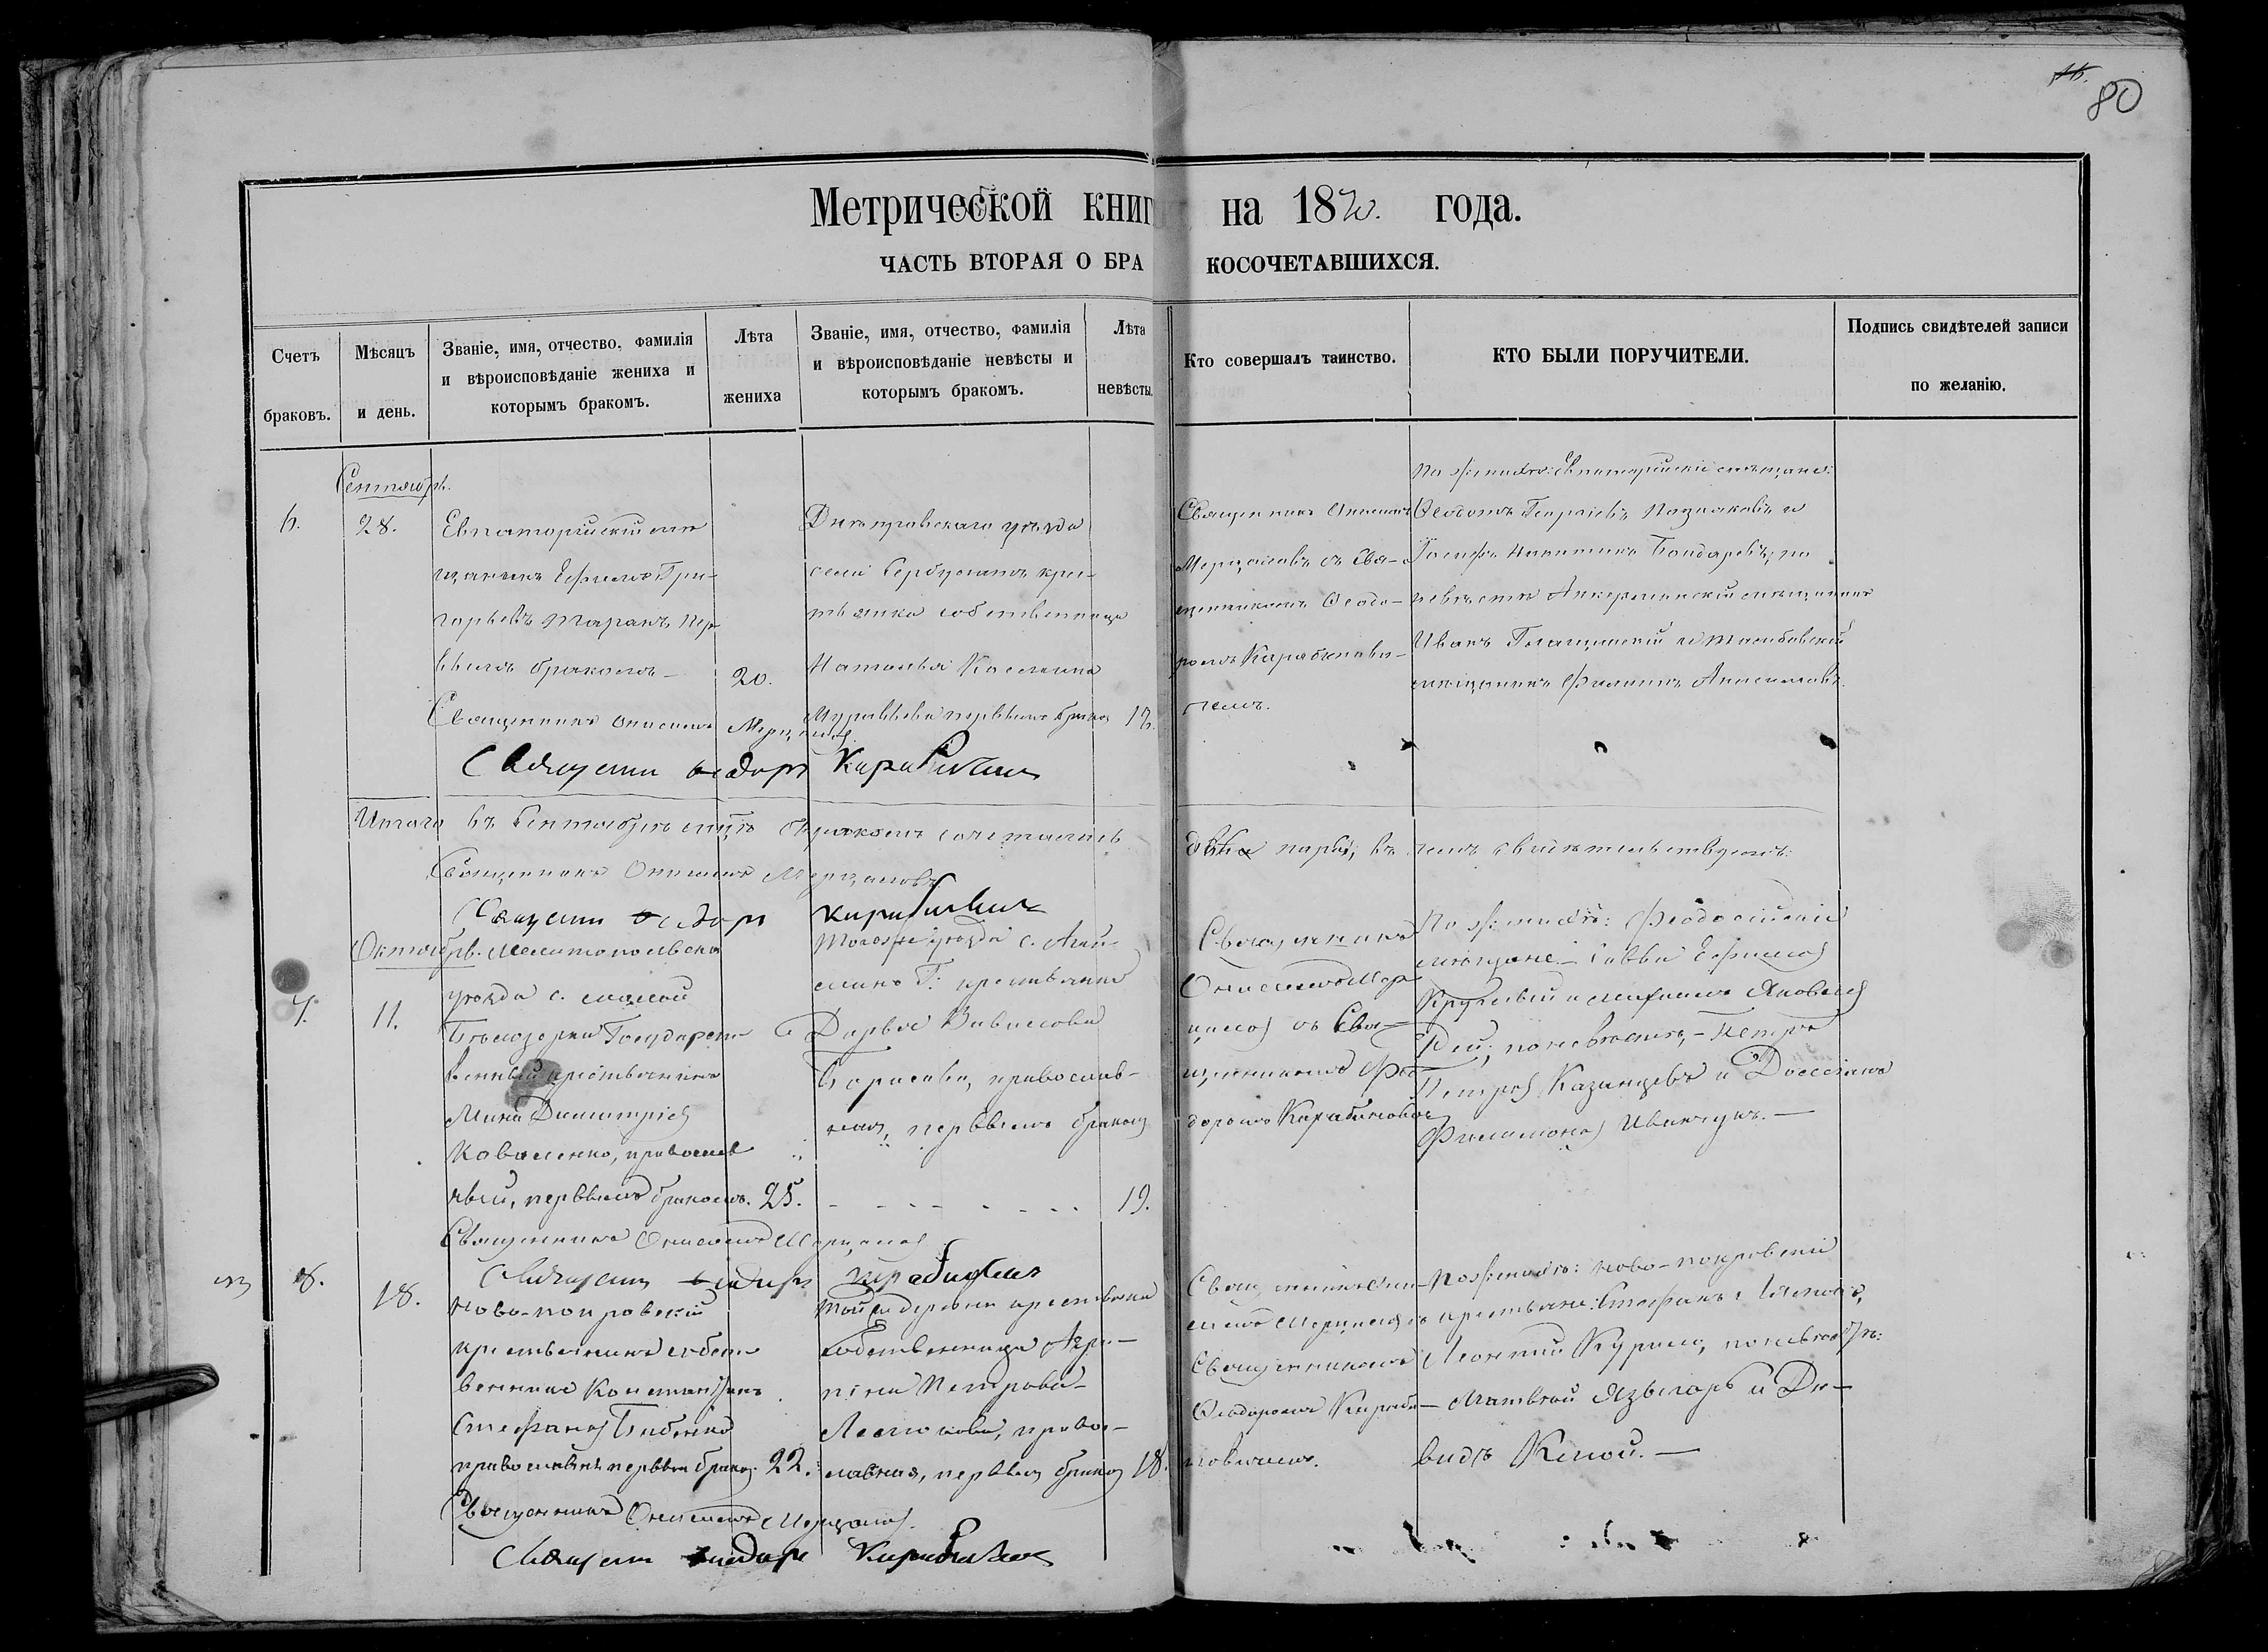 80
Метрической книг на 1870. года.
ЧАСТЬ ВТОРАЯ О БРАКОСОЧЕТАВШИХСЯ.
Счетъ браковъ.
Мѣсяцъ и день.
Званіе, имя, отчество, фамилія
и вѣроисповѣданіе жениха и
которымъ бракомъ.
Лѣта жениха
Званіе, имя, отчество, фамилія
и вѣроисповѣданіе невѣсты и
которымъ бракомъ.
Лѣта невѣсты.
Кто совершалъ таинство.
КТО БЫЛИ ПОРУЧИТЕЛИ.
Подпись свидѣтелей записи
по желанію.
Сентябрь.
6.
28.
Евпаторійскій мѣ
щанинъ Ефимъ Гри-
горьевъ Таранъ пер-
вымъ бракомъ
20.
Днѣпровскаго уѣзда
села крес-
тьянка собственница
Наталья Космина
Муравьева первымъ брако
17.
Священникъ Онисимъ
Мерцаловъ съ Свя-
щенникомъ Ѳеодо-
ромъ Карабинови-
чемъ.
По женихѣ: Евпаторійскіе мѣщане:
Ѳедотъ Георгіевъ Позняковъ и
Іосифъ Никитинъ Бондаревъ; по
невѣстѣ Анкерманскій мѣщанинъ
Иванъ и
мѣщанинъ Филиппъ Анисимовъ
Священникъ Онисимъ Мерцаловъ
Священни Ѳедоръ Карабинович
Итого въ Сентябрѣ мцѣ бракомъ сочеталось
двѣ пары, въ чемъ свидѣтельствуемъ:
Священникъ Онисимъ Мерцаловъ
Священни Ѳедоръ Карабинович
Октябрь.
7.
11.
Мелитопольскаго
уѣзда с. малой
Бѣлозерки Государст
венный крестьянинъ
Мина Димитріев
Коваленко, православ
ный, первымъ бракомъ.
25.
Тогоже уѣзда с.
крестьянка
Дарья Вавилова
Борисова, православ-
ная, первымъ браком
19.
Священникъ
Онисимъ Мер
цалов съ Свя-
щенникомъ Фео
доромъ Карабинович
По женихѣ: Феодосійскіе
мѣщане: Савва Ефимов
Круглый и Михаилъ Яковлев
Рей; по невѣстѣ, - Петръ
Петров Казанцевъ и Досоѳей
Филимонов Иванчукъ. —
Священникъ Онисимъ Мерцалов
Священни Ѳедоръ Карабинович
8.
18.
Ново-покровскій
крестьянинъ собст
венникъ Константинъ
Стефанов Бабенко
православн. первым брако.
22.
Той же деревни крестьянка
собственница Агри-
пина Петрова
правос-
лавная, первым браком
18.
Священникъ Они-
симъ Мерцалов съ
Священникомъ
Ѳеодоромъ Караби-
новичемъ.
По женихѣ: Ново-покровскіе
крестьяне: Стефанъ
Леонтий Курило, по невѣстѣ:
Матвѣй и Да-
видъ —
Священникъ Онисимъ Мерцалов.
Священни Ѳедоръ Карабинович